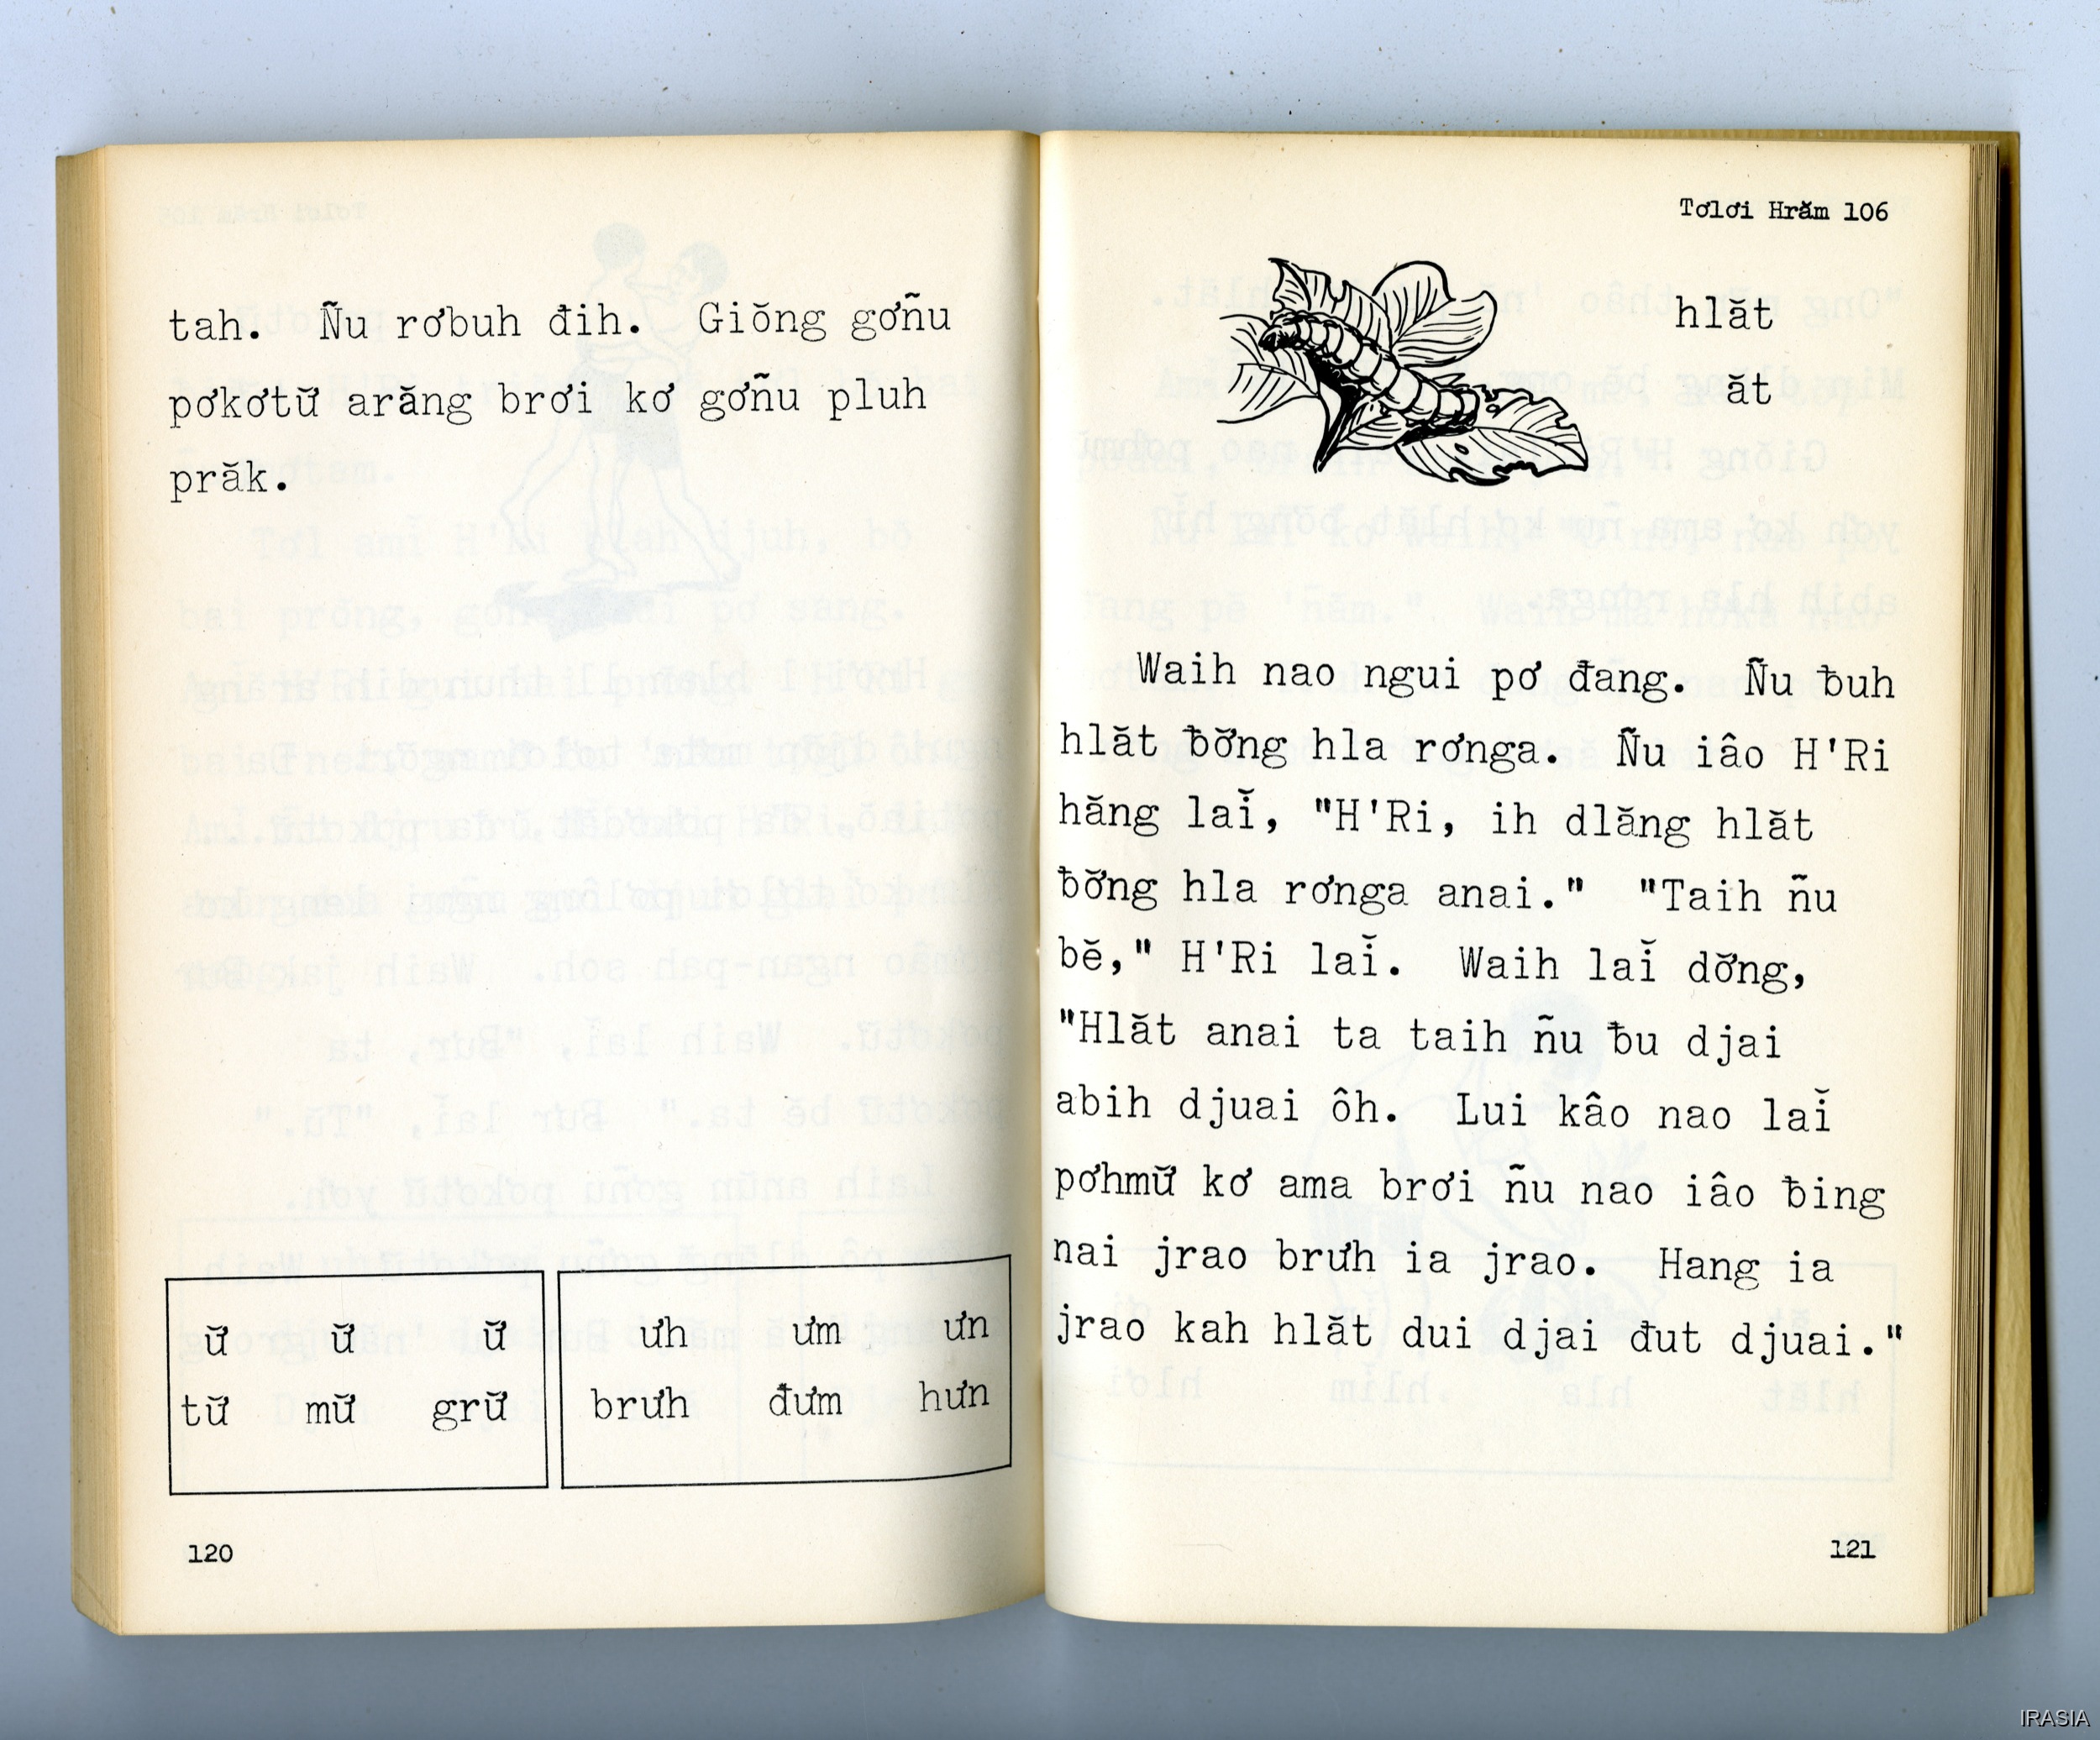 tah.  Ñu rơbuh đih.  Giŏng gơñu
pơkơtư̆ arăng brơi kơ gơñu pluh
prăk.
ư̆ ư̆ ư̆
tư̆ mư̆ grư̆
ưh ưm ưn
brưh đưm hưn
120
Tơlơi Hrăm 106
hlăt
ăt
Waih nao ngui pơ đang.  Ñu ƀuh
hlăt ƀơ̆ng hla rơnga.  Ñu iâo H'Ri
hăng laĭ, "H'Ri, ih dlăng hlăt
ƀơ̆ng hla rơnga anai."  "Taih ñu
bĕ," H'Ri laĭ.  Waih laĭ dơ̆ng,
"Hlăt anai ta taih ñu ƀu djai
abih djuai ôh.  Lui kâo nao laĭ
pơhmư̆ kơ ama brơi ñu nao iâo ƀing
nai jrao brưh ia jrao.  Hang ia
jrao kah hlăt dui djai đut djuai."
121
IRASIA